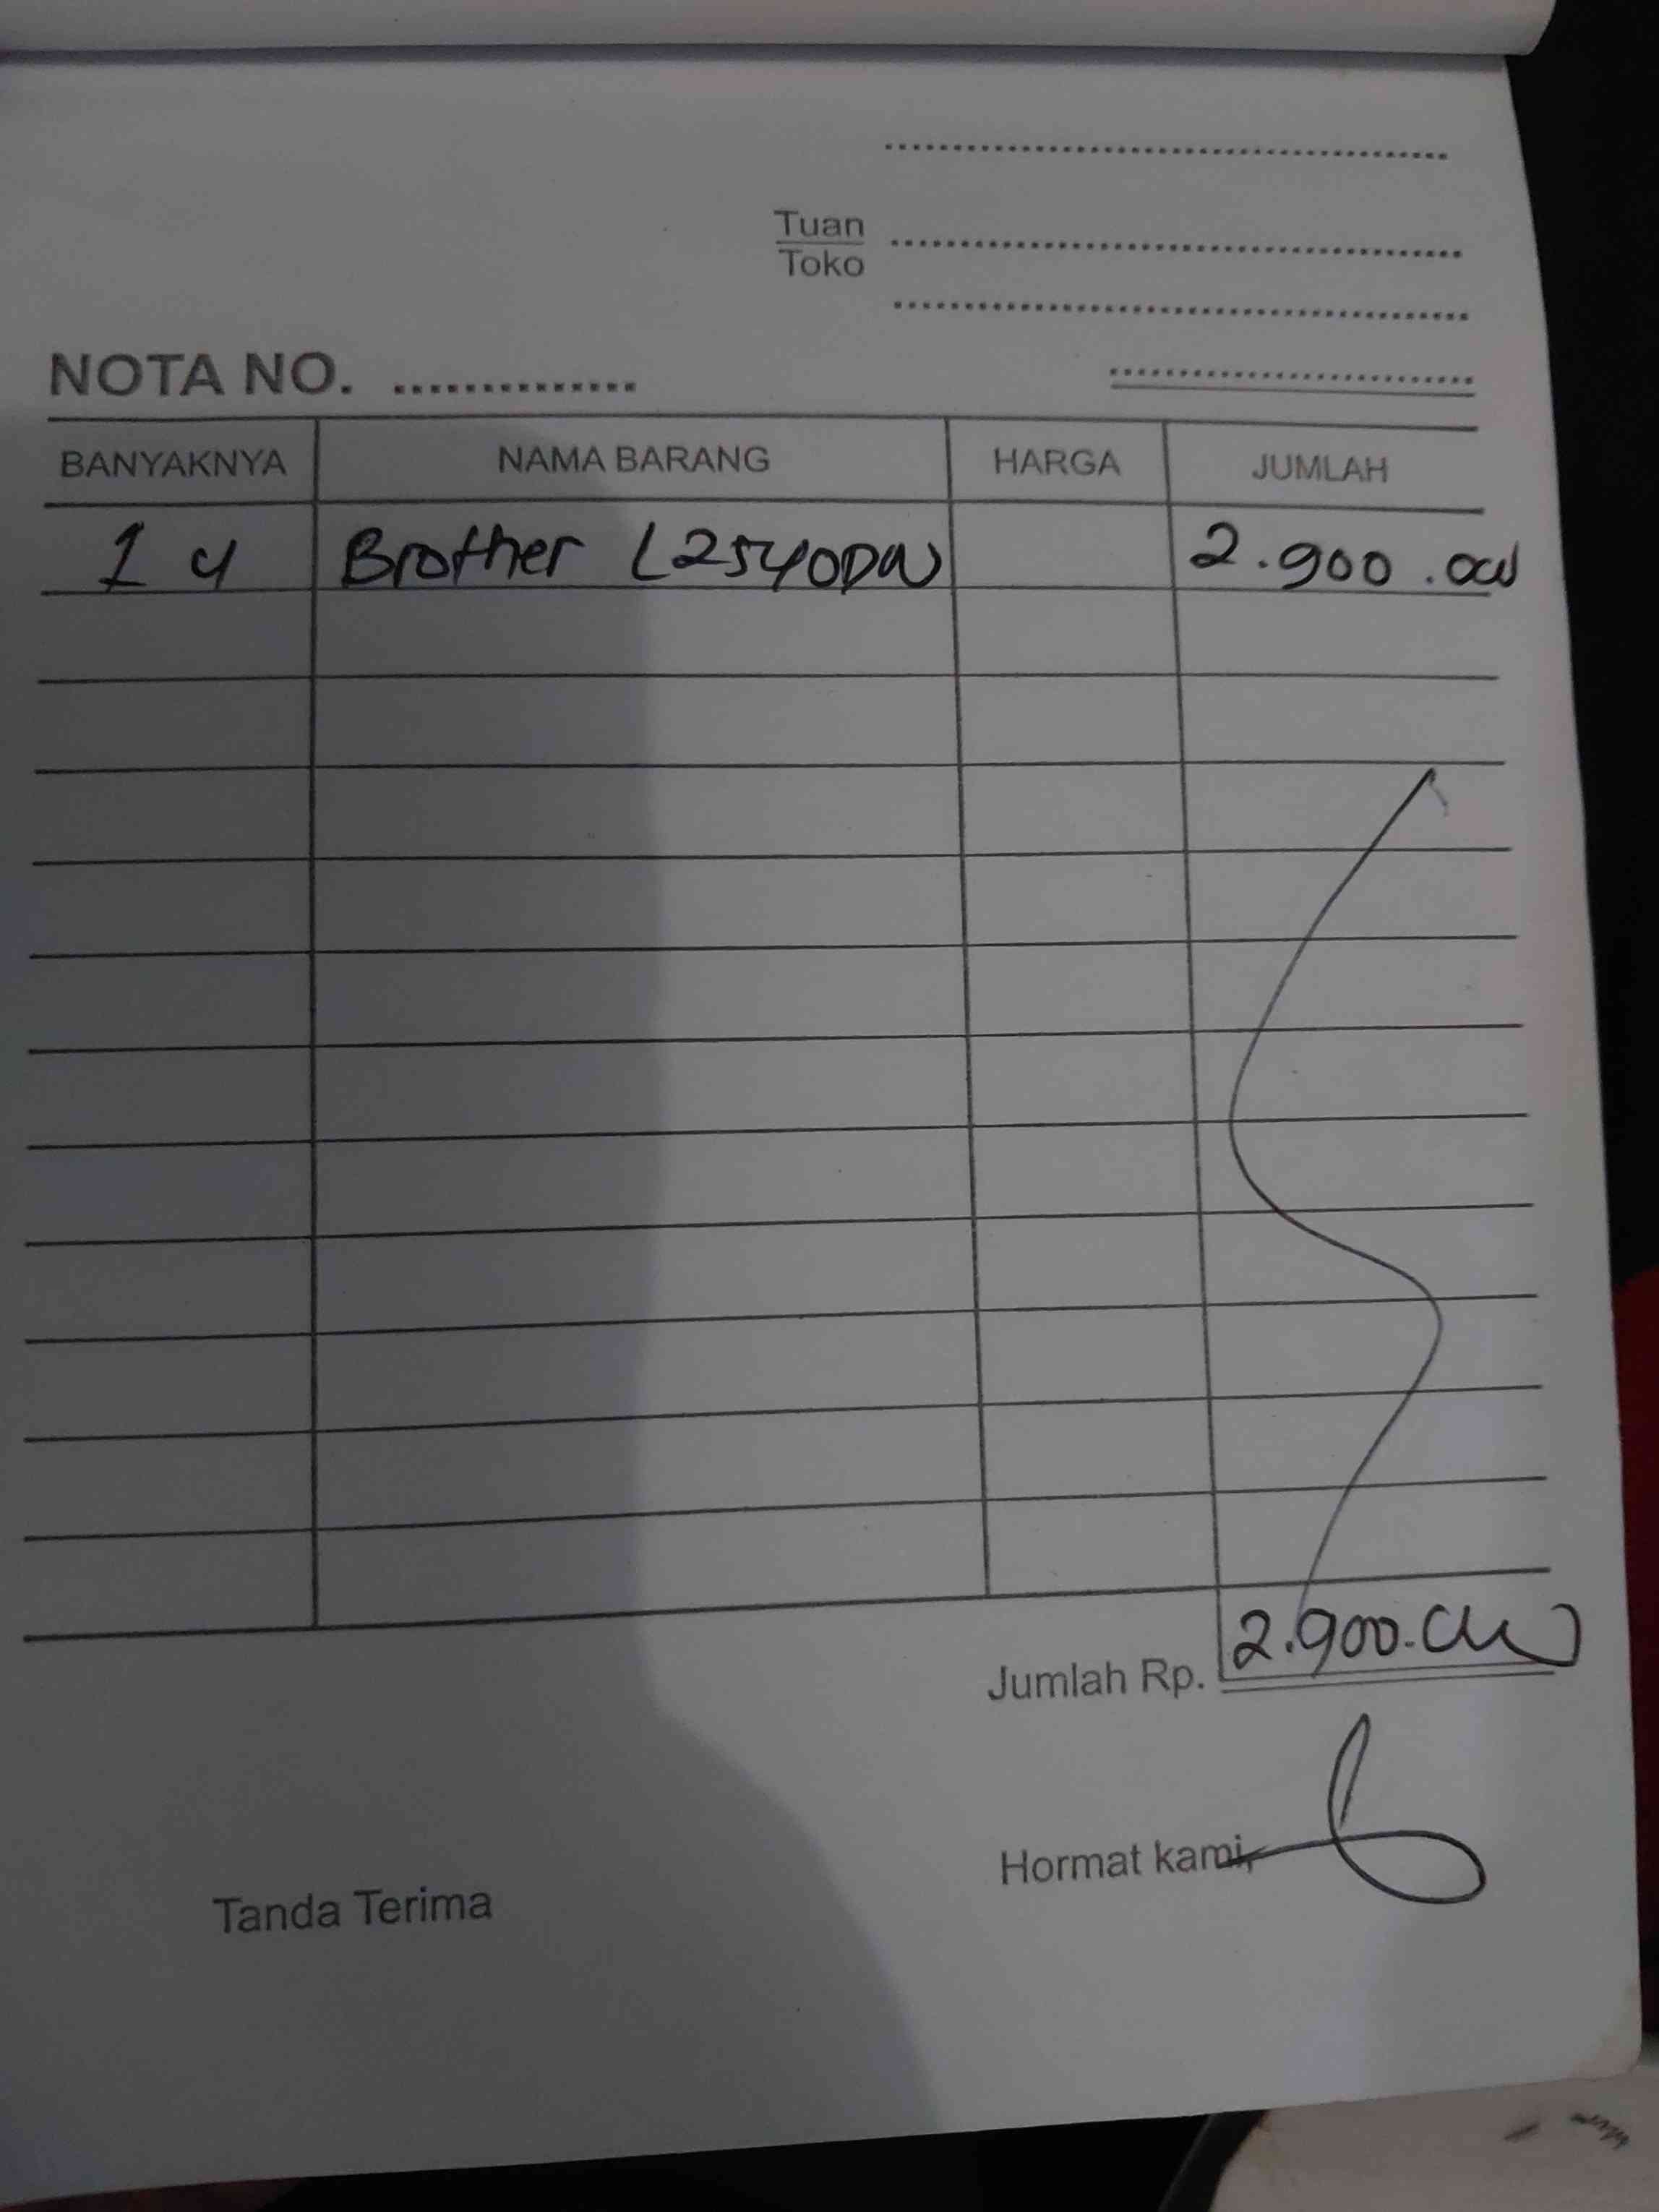 Tuan
Toko
NOTA NO.
BANYAKNYA NAMA BARANG HARGA JUMLAH
1 u Brother L2540DW 2.900.000
Jumlah Rp. 2.900.000
Hormat kami,
Tanda Terima